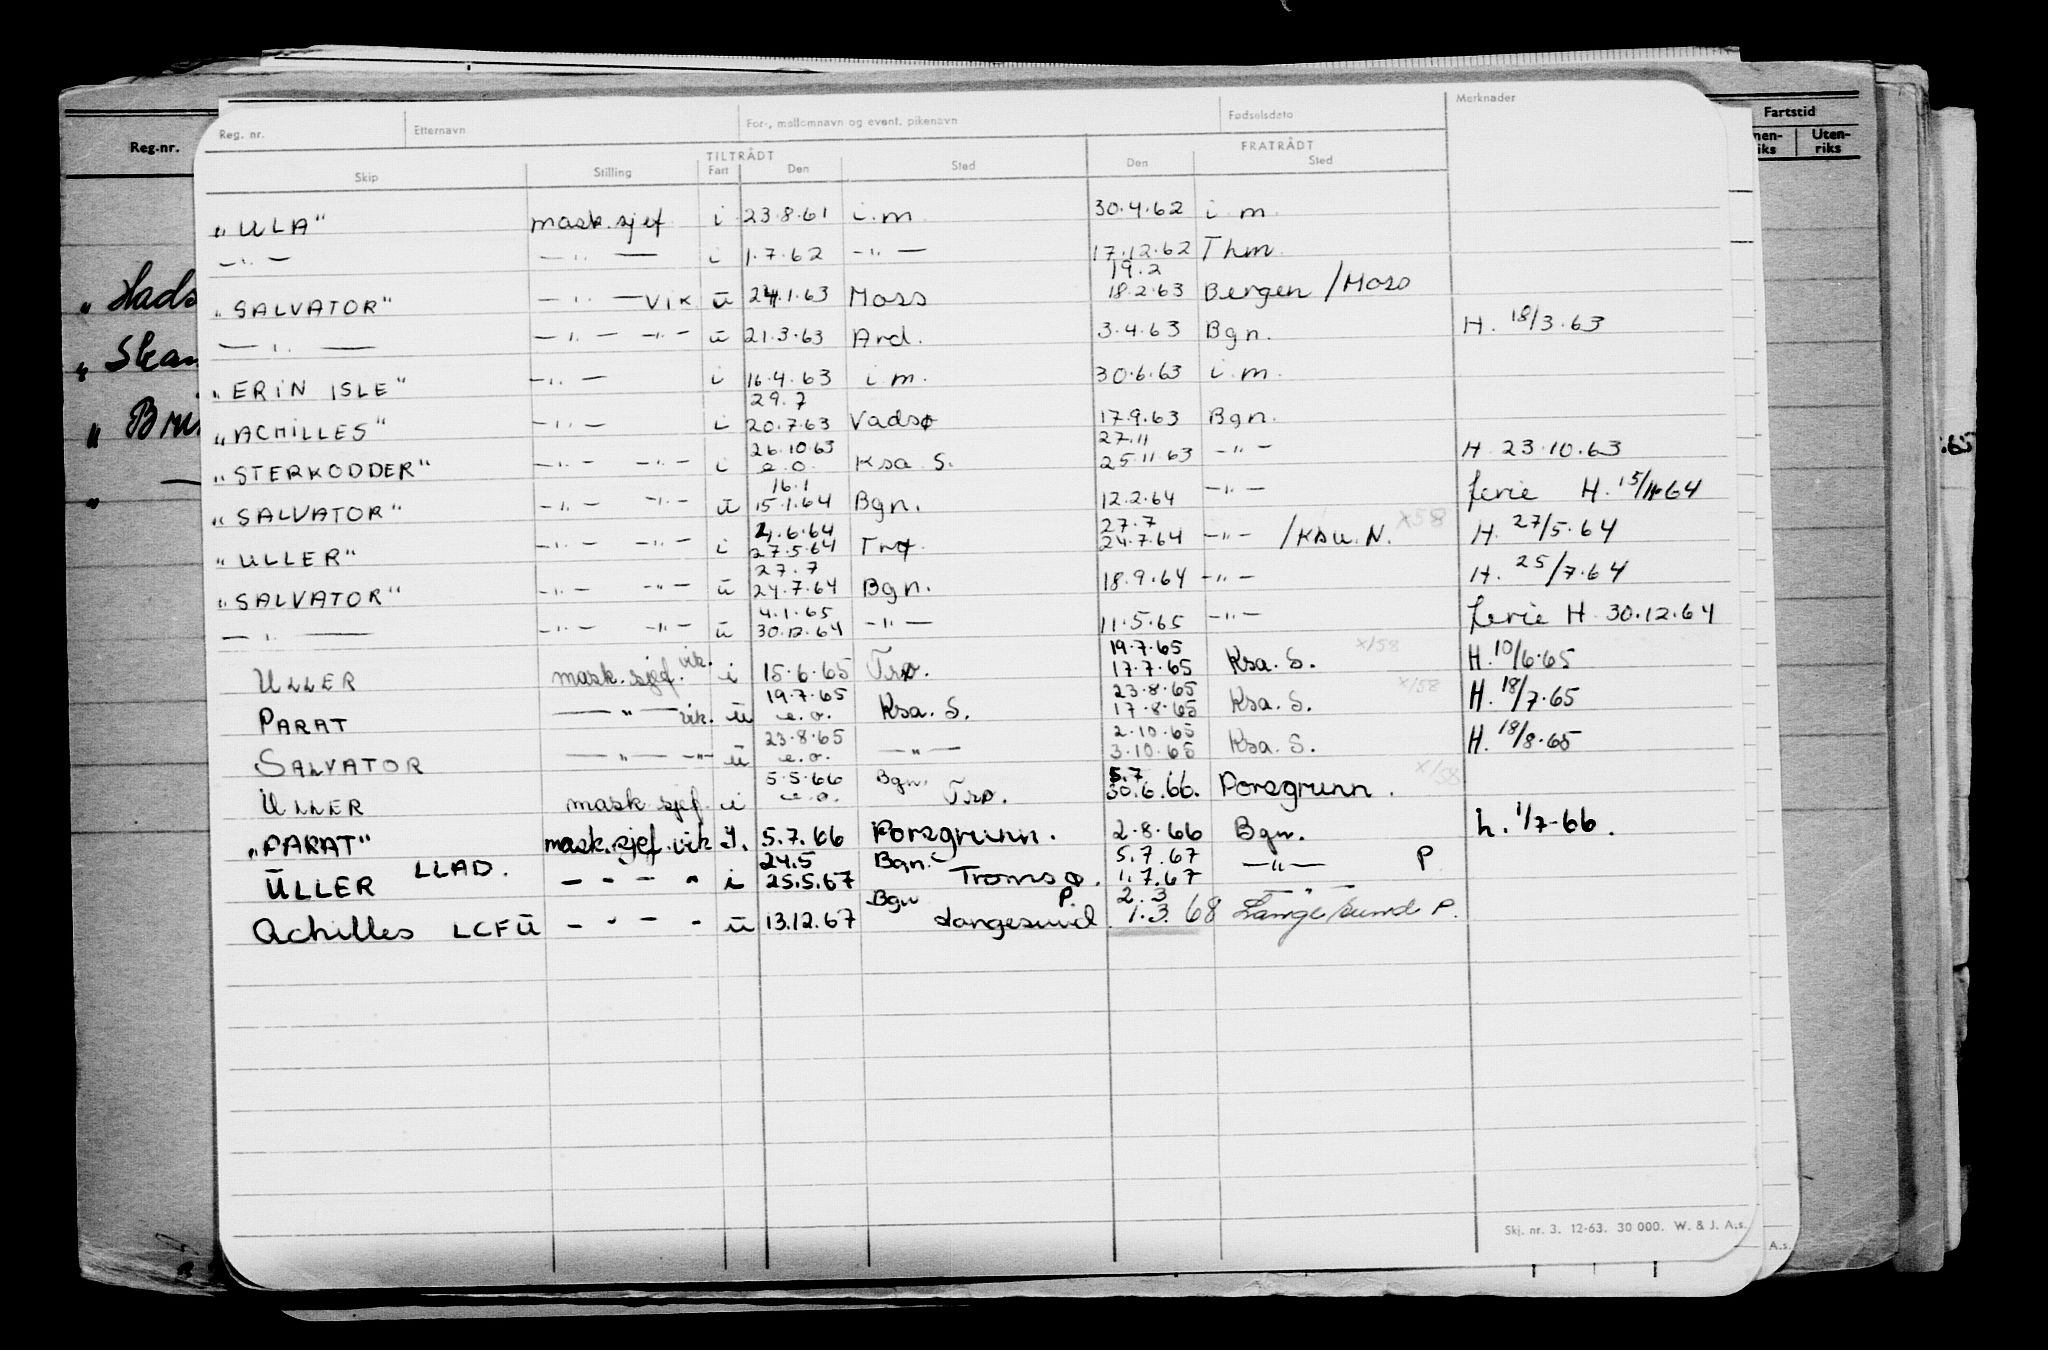 Fartstid
Reg.nr.
Uten-
riks
Reg. nr. Etternavn For-, mellomnavn og event. pikenavn Fødselsdato Merknader
TILTRÅDT FRATRÅDT
Skip Stilling Fart Den Sted Den Sted
"ULA" mask.sjef i 23.8.61 i.m. 30.4.62 i m.
—"— —"— i 1.7.62 —"— 17.12.62 Thm.
19.2
"SALVATOR" —"— VIK ü 24.1.63 Moss 18.2.63 Bergen /Moss
—"— —"— —"— ü 21.3.63 Ard. 3.4.63 Bgn. H. 18/3.63
"ERIN ISLE" —"— i 16.4.63 i.m. 30.6.63 i.m.
29.7
"ACHILLES" —"— i 20.7.63 Vadsø 17.9.63 Bgn.
26.10.63 27.11
"STERKODDER" —"— —"— i e.o. Ksa S. 25.11.63 —"— H. 23.10.63
16.1
"SALVATOR" —"— —"— ü 15.1.64 Bgn. 12.2.64 —"— ferie H. 15/1.64
4.6.64 27.7
"ULLER" —"— —"— i 27.5.64 Trø. 24.7.64 —"— /KSU. N. x58 H. 27/5.64
27.7
"SALVATOR" —"— —"— ü 24.7.64 Bgn. 18.9.64 —"— H. 25/7.64
4.1.65
—"— —"— —"— ü 30.12.64 —"— 11.5.65 —"— ferie H. 30.12.64
19.7.65
ULLER mask.sjef. vik. i 15.6.65 Trø. 17.7.65 Ksa. S. x/58 H. 10/6.65
19.7.65 23.8.65
PARAT —"— vik. ü e.o. Ksa. S. 17.8.65 Ksa. S. x/58 H. 18/7.65
23.8.65 2.10.65
SALVATOR —"— —"— ü e.o. —"— 3.10.65 Ksa. S. H. 18/8.65
5.5.66 Bgn. 5.7
ULLER mask sjef. i e.o. Trø. 30.6.66. Porsgrunn. x/58
"PARAT" mask.sjef.vik I. 5.7.66 Porsgrunn. 2.8.66 Bgn. h. 1/7-66.
24.5 Bgn. 5.7.67
ULLER LLAD. — " — " i 25.5.67 Tromsø. 1.7.67 —"— P
Bgn P. 2.3 — " —
Achilles LCFÜ — " — " ü 13.12.67 Langesund. 1.3.68 Langesund P.
Skj. nr. 3. 12-63. 30 000. W. & J. A.s.
A.s.